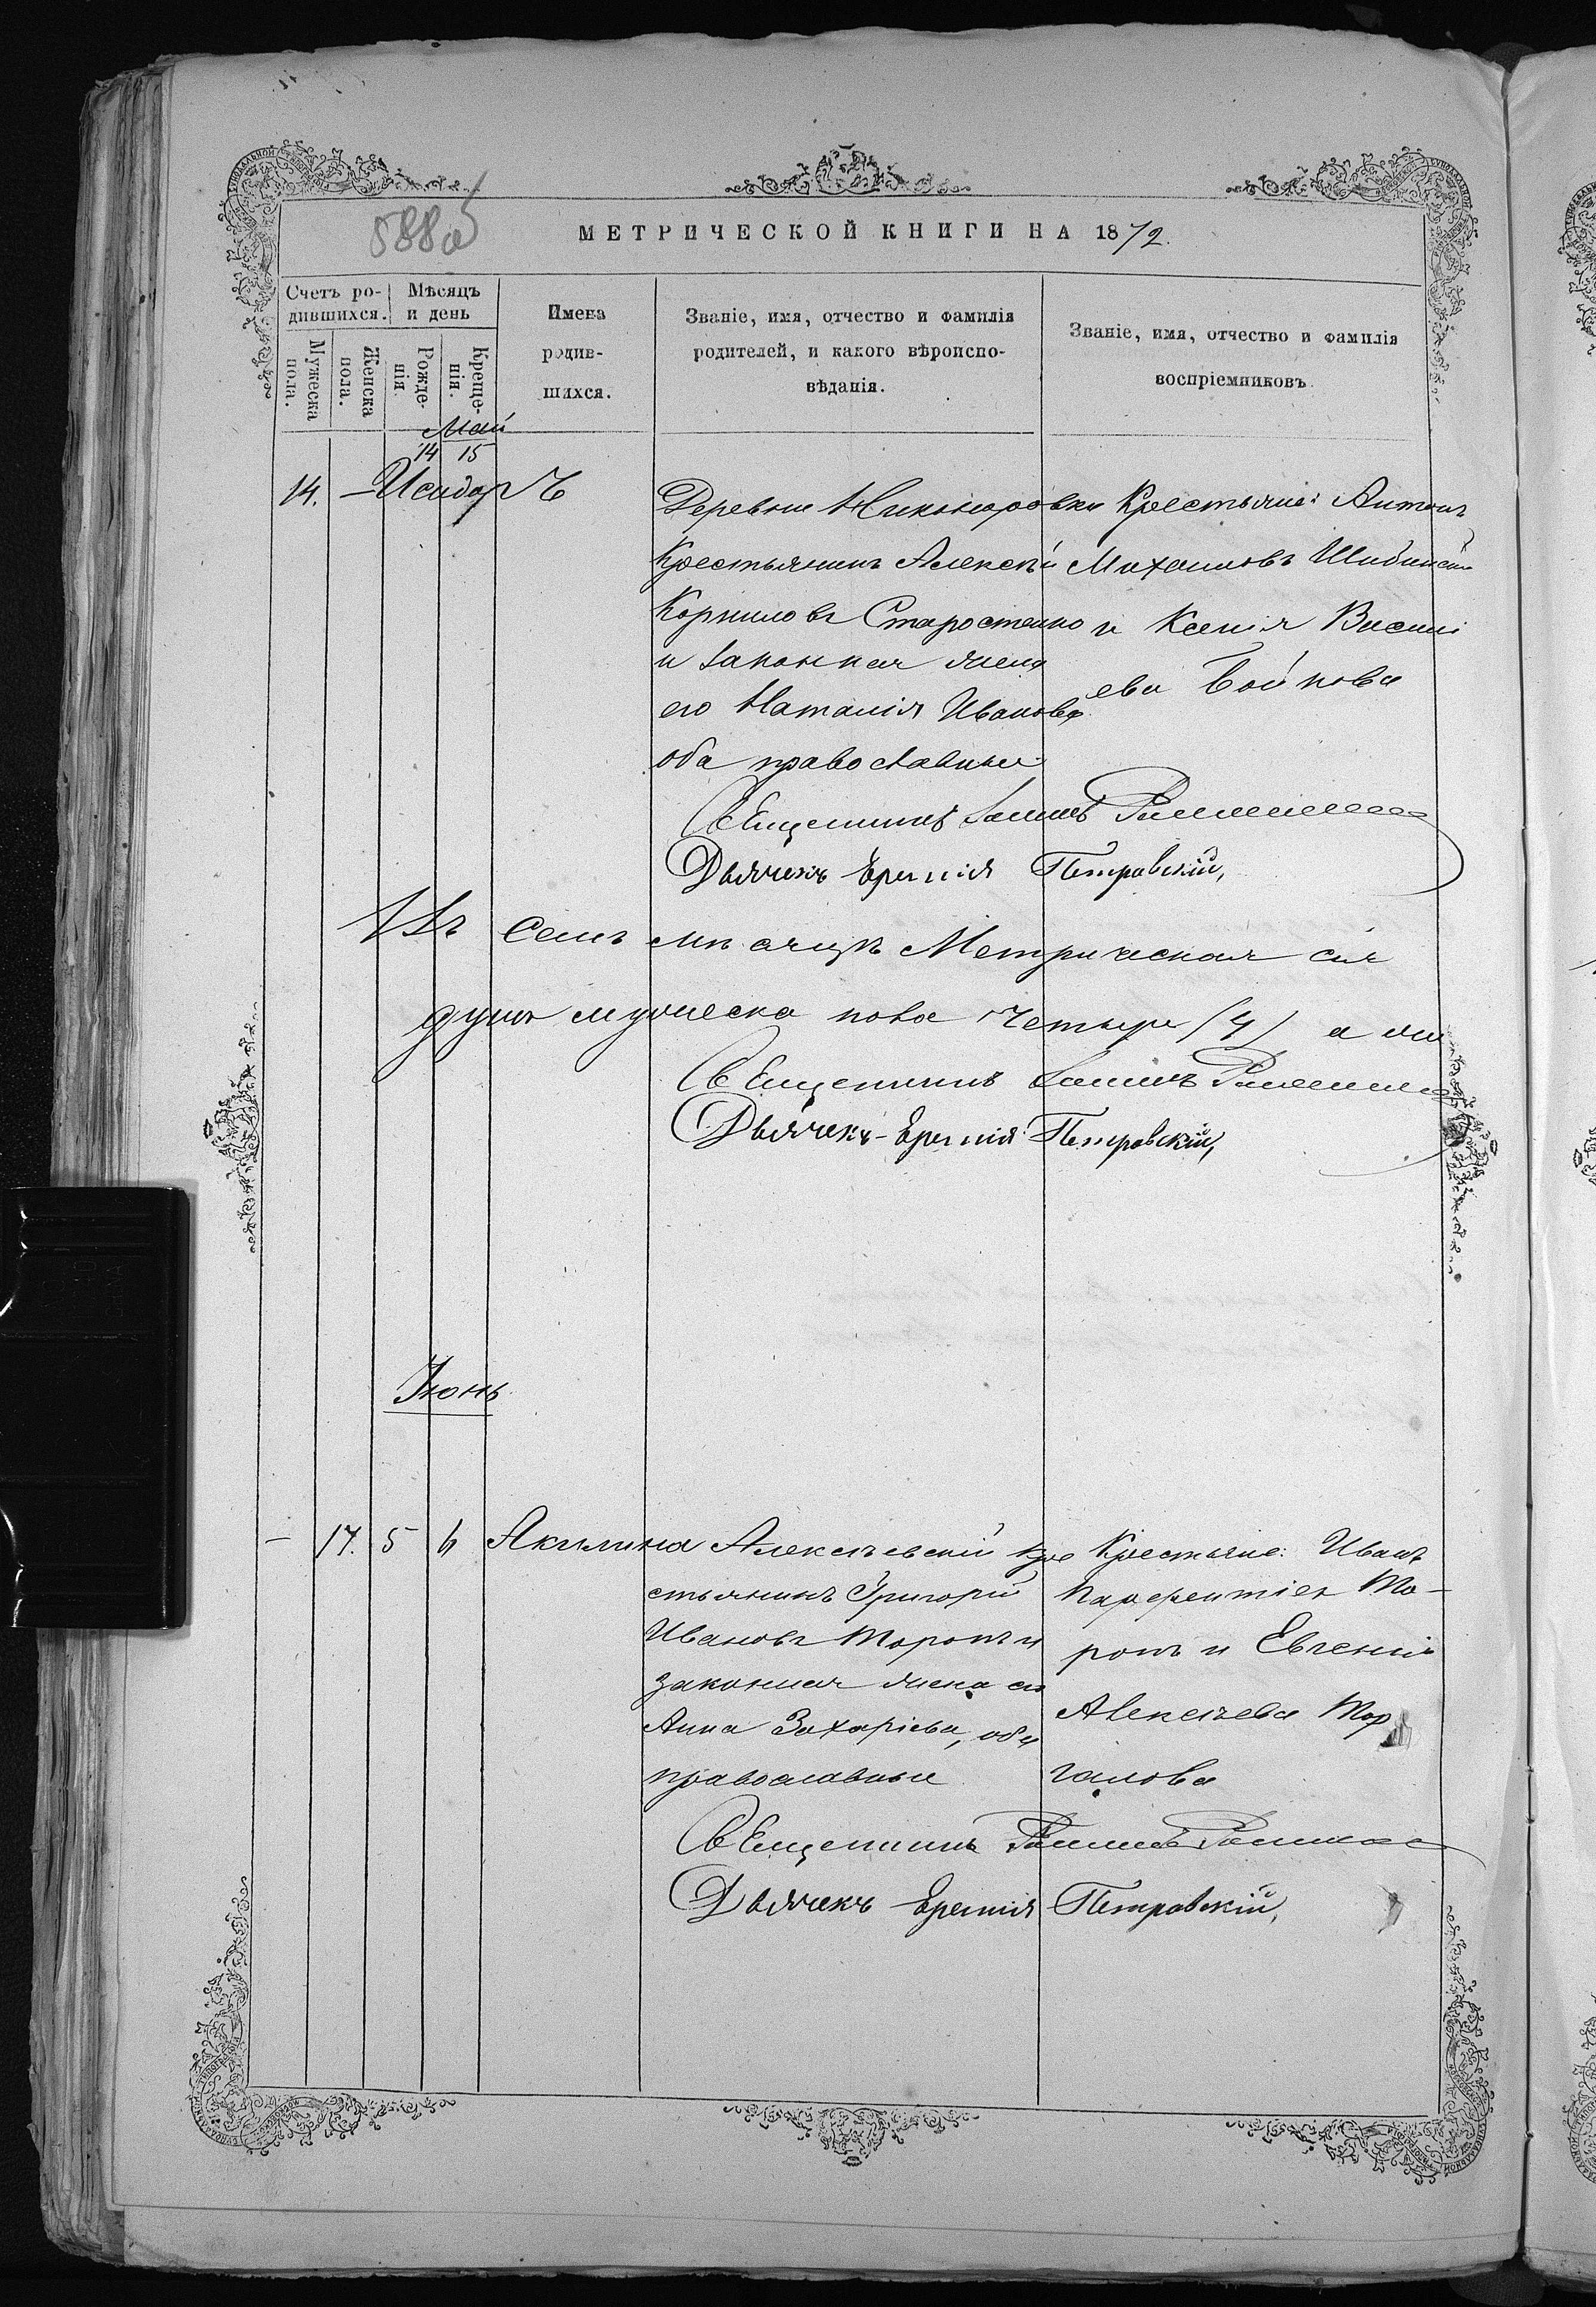 588об
МЕТРИЧЕСКОЙ КНИГИ НА 1872.
Счетъ ро-
дившихся.
Мужеска
пола.
Женска
пола.
Мѣсяцъ
и день
Рожде-
нія.
Креще-
нія.
Имена
родив-
шихся.
Званіе, имя, отчество и фамилія
родителей, и какого вѣроиспо-
вѣданія.
Званіе, имя, отчество и фамилія
воспріемниковъ.
Май
14 15
14. — Исидоръ
Деревни Никоноровки
Крестьянинъ Алексѣй
Корниловъ Старостенко
и законная жена
его Наталія Иванова
оба православные
Крестьяне: Антонъ
Михаиловъ
и Ксенія Васили
ева Бойкова
Священникъ
Дьячекъ Еремія Петровскій,
Въ семъ мѣсяцѣ Метрическая сія
душъ мужеска пола четыре (4) а же
Священникъ
Дьячекъ Еремія Петровскій,
Іюнь
— 17. 5 6 Акилина
Алексѣевскій кре
стьянинъ Григорій
Ивановъ Моронъ и
законная жена его
Анна Захаріева, оба
православные
Крестьяне: Иванъ
Парфентіев Мо-
ронъ и Евгенія
Алексѣева Мор
галова
Священникъ
Дьячекъ Еремія Петровскій,